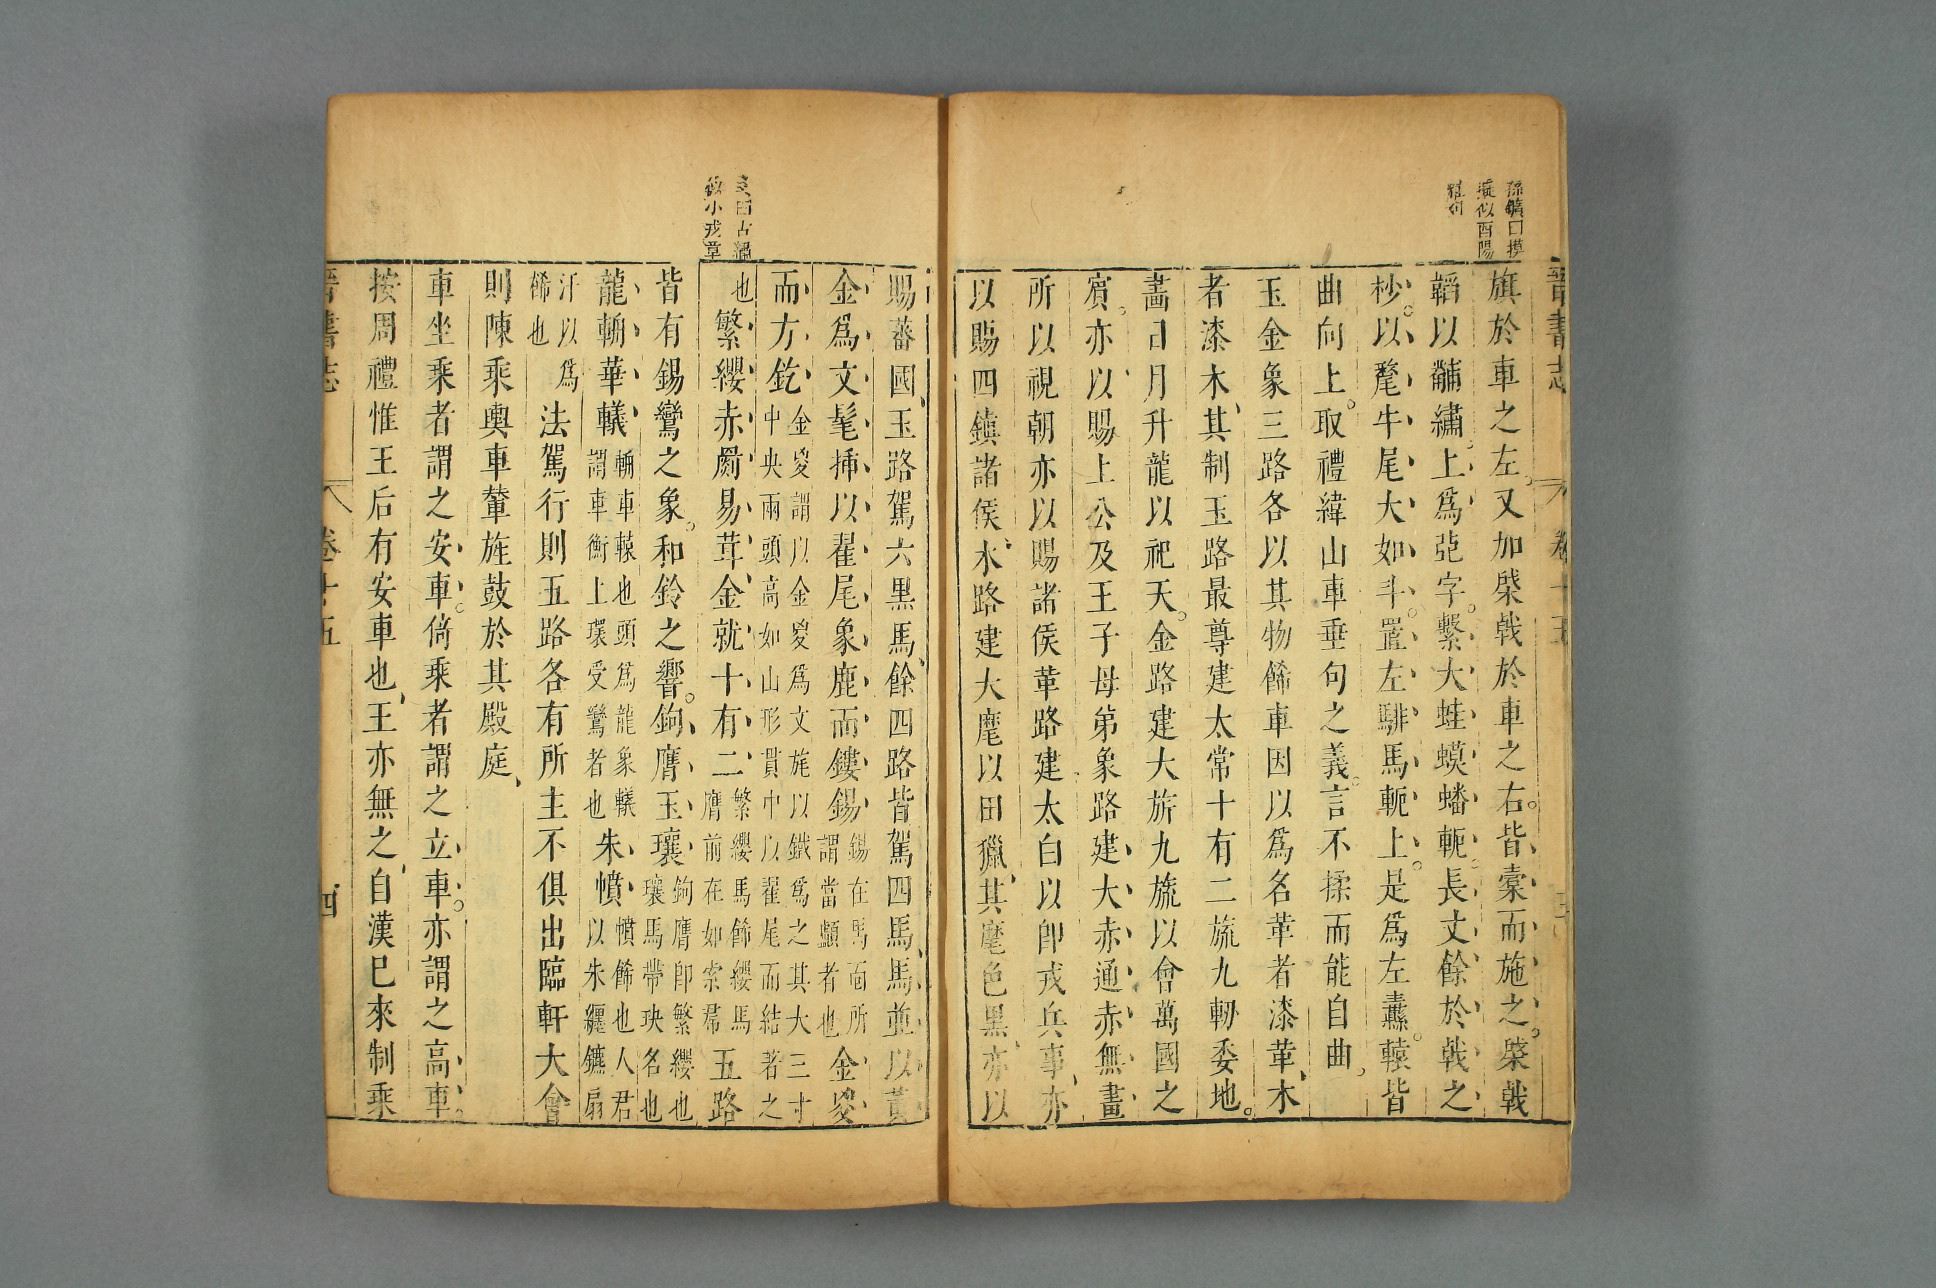 晉書志 卷十五
孫鑛曰摸
擬似酉陽
雜俎
旗於車之左又加棨戟於車之右皆橐而施之棨戟
韜以黼繡上爲亞字繫大蛙蟆蟠軛長丈餘於戟之
杪以氂牛尾大如斗置左騑馬軛上是爲左纛轅皆
曲向上取禮緯山車垂句之義言不揉而能自曲
玉金象三路各以其物飾車因以爲名革者漆革木
者漆木其制玉路最尊建太常十有二旒九軔委地
畵日月升龍以祀天金路建大旂九旒以會萬國之
賓亦以賜上公及王子母弟象路建大赤通赤無畫
所以視朝亦以賜諸侯革路建太白以卽戎兵事亦
以賜四鎭諸侯木路建大麾以田獵其麾色黑亦以
賜蕃國玉路駕六黑馬餘四路皆駕四馬馬並以黃
金爲文髦揷以翟尾象鹿而鏤錫錫在馬面所謂當顱者也金㚇
而方釳金㚇謂以金㚇爲文旄以鐵爲之其大三寸中央兩頭高如山形貫中以翟尾而結著之
也繁纓赤罽易茸金就十有二繁纓馬飾纓馬膺前在如索帬五路
皆有錫鸞之象和鈴之響鉤膺玉瓖鉤膺卽繁纓也瓖馬帶玦名也
龍輈華轙輈車轅也頭爲龍象轙謂車衡上環受鸞者也朱幩幩飾也人君以朱纒鑣扇
汗以爲飾也法駕行則五路各有所主不俱出臨軒大會
則陳乘輿車輦旌鼓於其殿庭
車坐乘者謂之安車倚乘者謂之立車亦謂之高車
按周禮惟王后有安車也王亦無之自漢已來制乘
晉書志 卷十五 四